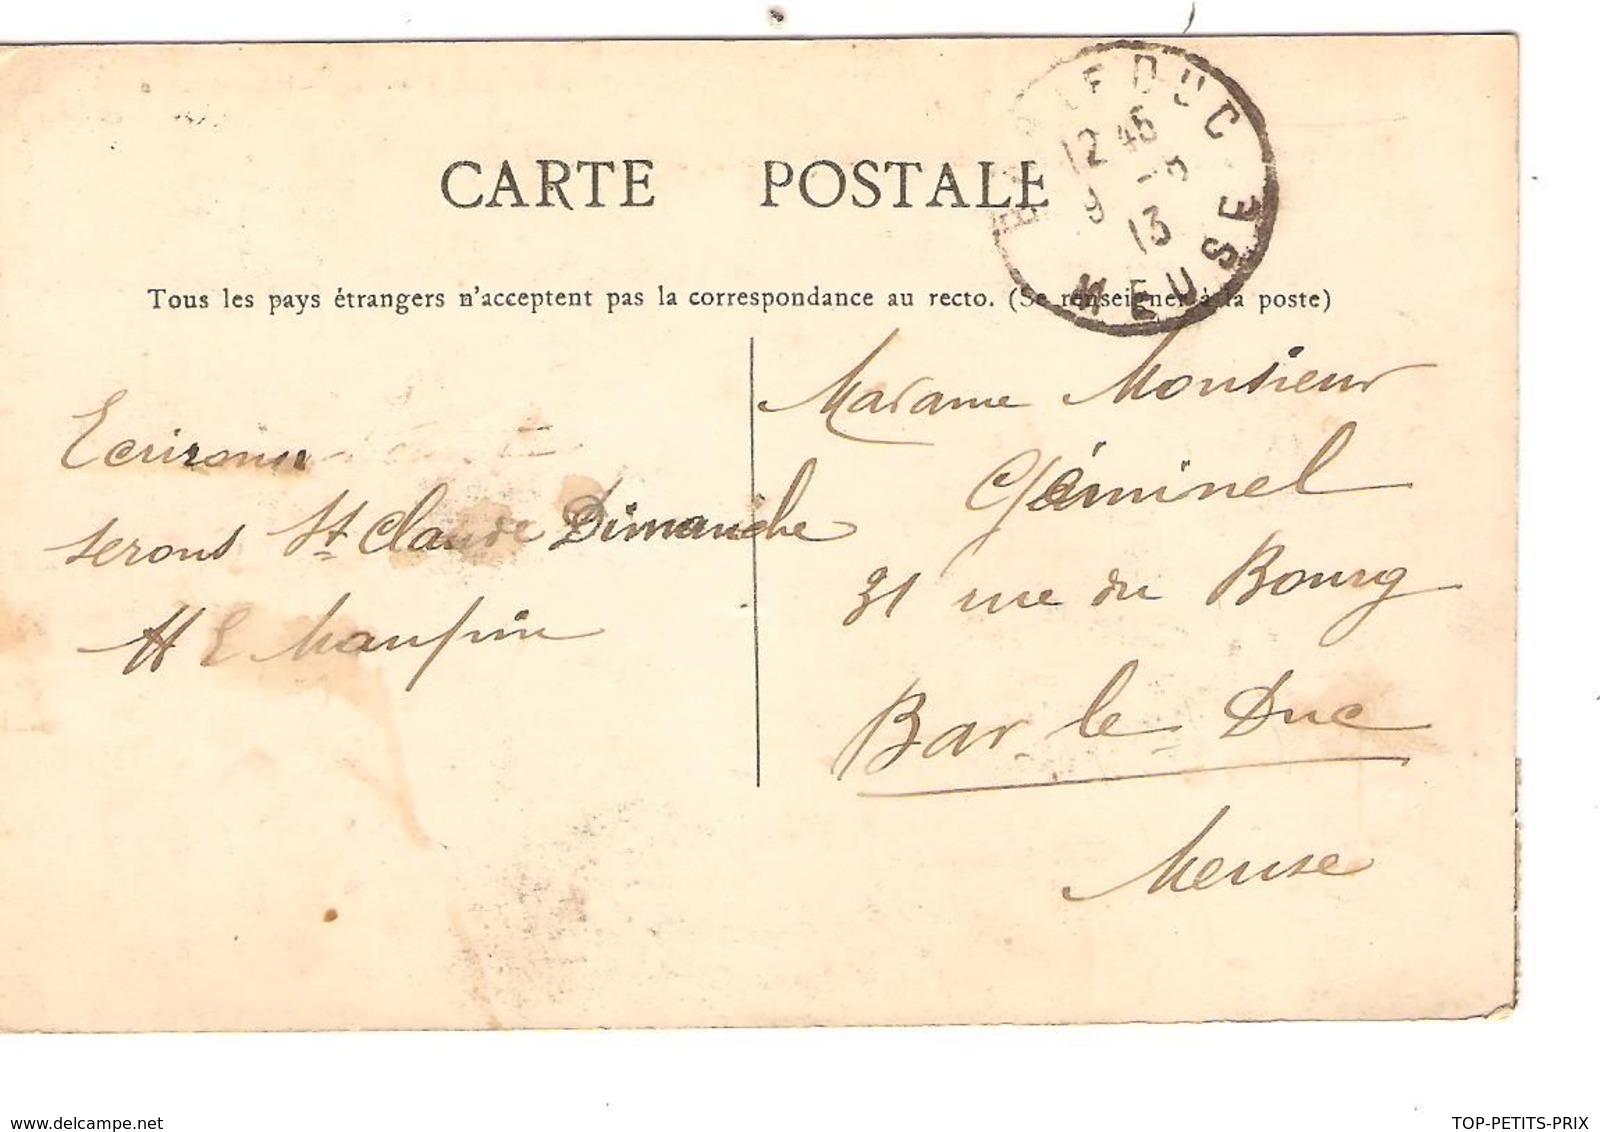 CARTE POSTALE
BAR LE DUC
12 45
9 - 8
13
MEUSE
Tous les pays étrangers n'acceptent pas la correspondance au recto. (Se renseigner à la poste)
Ecrirons
serons St Claude Dimanche
H E Maupin
Madame Monsieur
Géminel
31 rue du Bourg
Bar-le-Duc
Meuse
delcampe.net
TOP-PETITS-PRIX